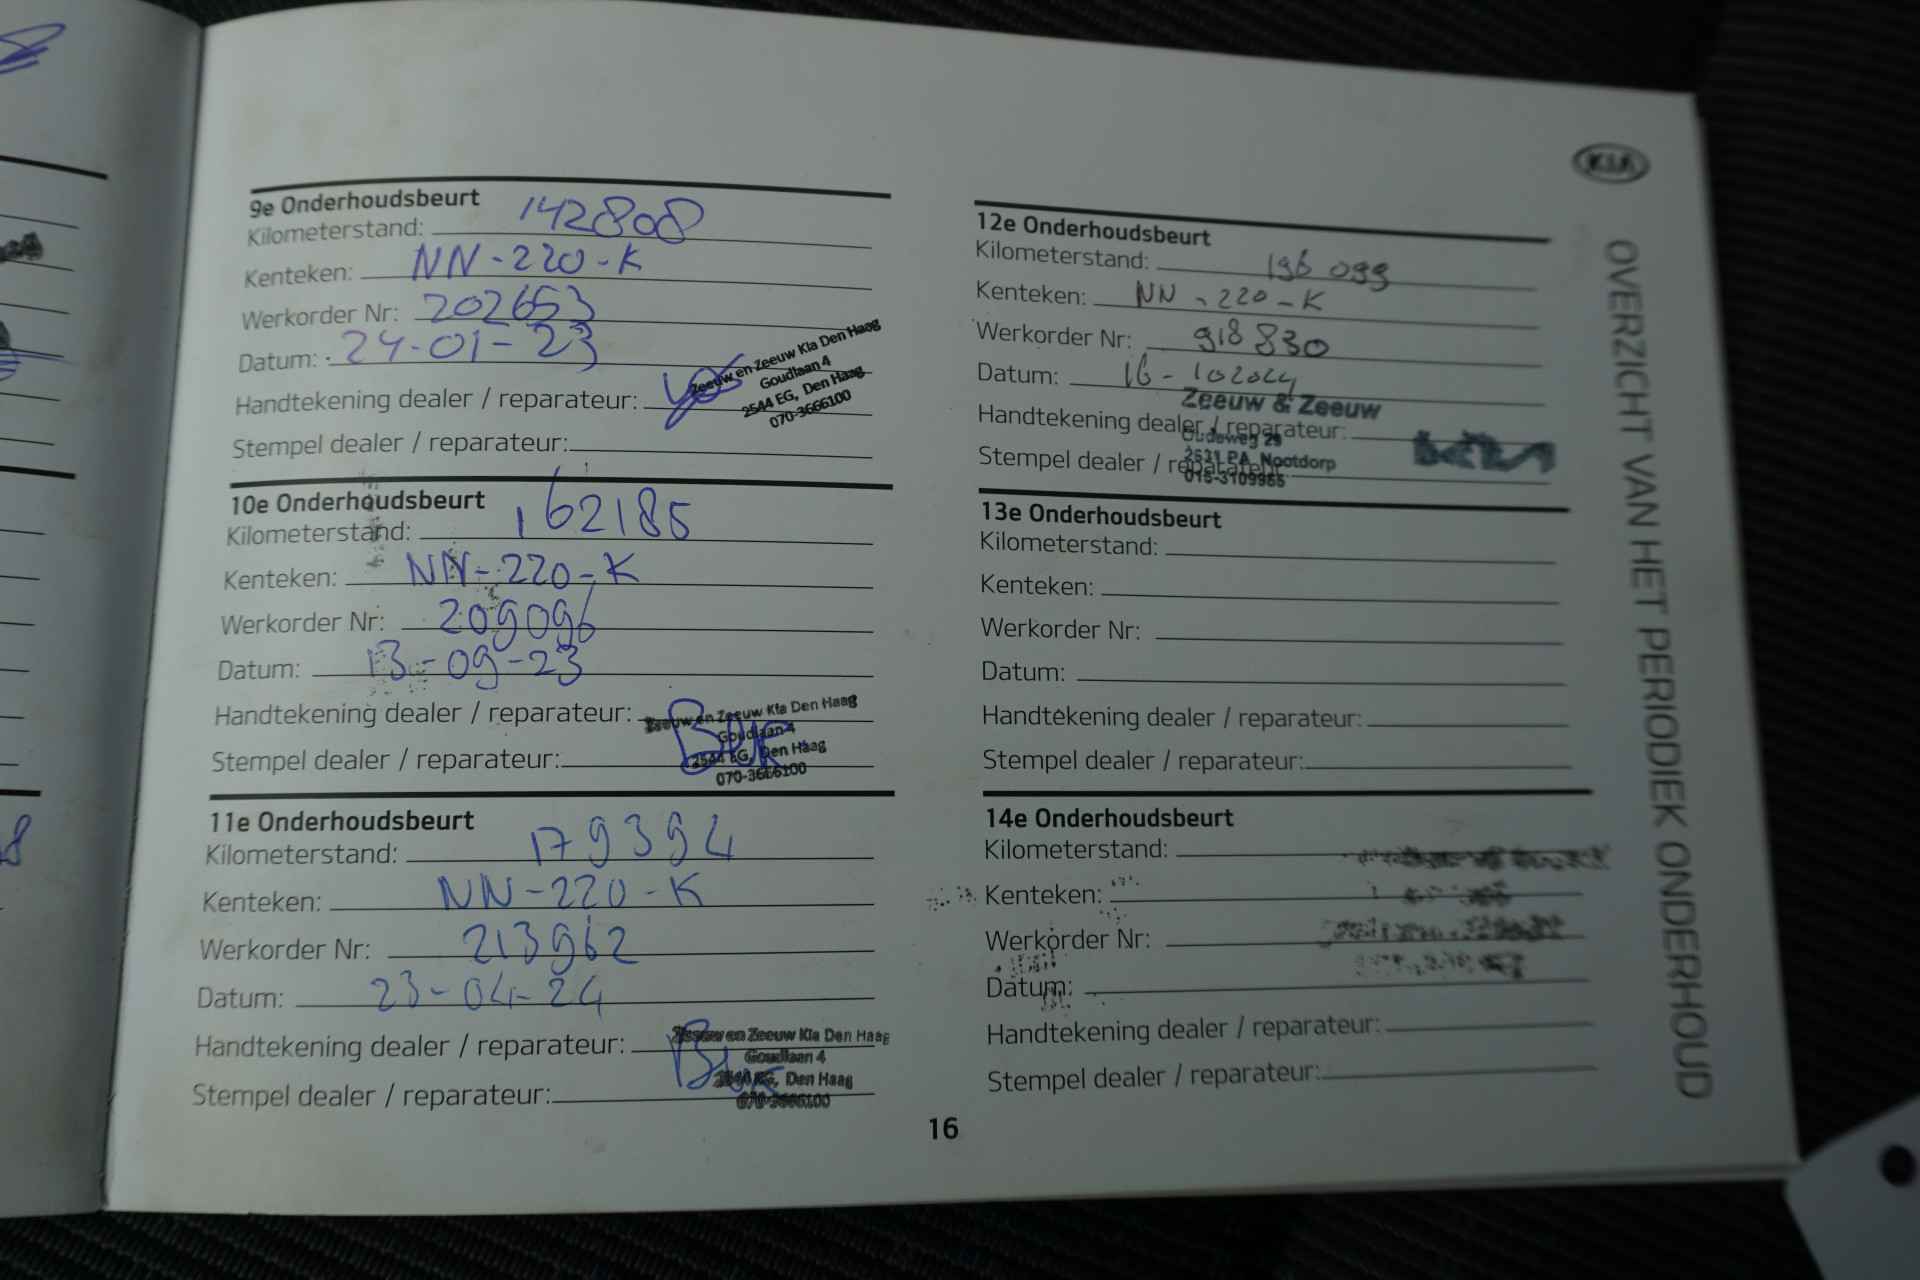 9e Onderhoudsbeurt
Kilometerstand: 142808
Kenteken: NN-220-K
Werkorder Nr: 202653
Datum: 24-01-23
Handtekening dealer / reparateur:
Zeeuw en Zeeuw Kia Den Haag
Goudlaan 4
2544 EG, Den Haag
070-3666100
Stempel dealer / reparateur:
10e Onderhoudsbeurt
Kilometerstand: 162185
Kenteken: NN-220-K
Werkorder Nr: 209096
Datum: 13-09-23
Handtekening dealer / reparateur:
Zeeuw en Zeeuw Kia Den Haag
Goudlaan 4
Stempel dealer / reparateur:
2544 EG, Den Haag
070-3666100
11e Onderhoudsbeurt
Kilometerstand: 179394
Kenteken: NN-220-K
Werkorder Nr: 213962
Datum: 23-04-24
Handtekening dealer / reparateur:
Zeeuw en Zeeuw Kia Den Haag
Goudlaan 4
2544 EG, Den Haag
Stempel dealer / reparateur:
070-3666100
16
KIA
12e Onderhoudsbeurt
Kilometerstand: 196 099
Kenteken: NN-220-K
Werkorder Nr: 918830
Datum: 16-102024
Zeeuw & Zeeuw
Handtekening dealer / reparateur:
Oudeweg 29
2631 PA Nootdorp
Stempel dealer / reparateur:
015-3109955
13e Onderhoudsbeurt
Kilometerstand:
Kenteken:
Werkorder Nr:
Datum:
Handtekening dealer / reparateur:
Stempel dealer / reparateur:
14e Onderhoudsbeurt
Kilometerstand:
Kenteken:
Werkorder Nr:
Datum:
Handtekening dealer / reparateur:
Stempel dealer / reparateur:
OVERZICHT VAN HET PERIODIEK ONDERHOUD